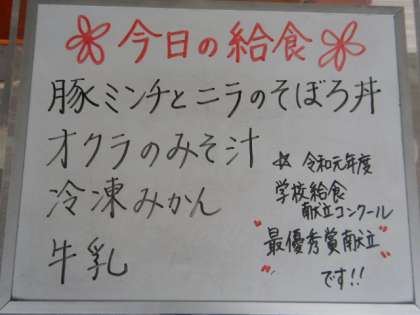 今日の給食
豚ミンチとニラのそぼろ丼
オクラのみそ汁
冷凍みかん
牛乳
☆ 令和元年度
学校給食
献立コンクール
"最優秀賞献立"
です!!